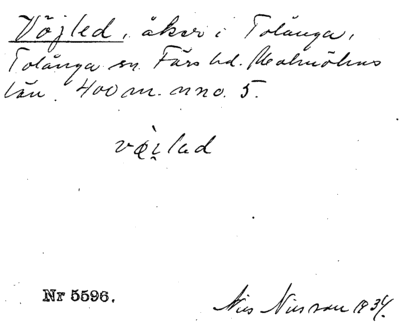 Vöjled, åker i Tolånga,
Tolånga sn. Färs hd. Malmöhus
län. 400 m. nno. 5.
vœ̀i̯lad
Nr 5596.
Nils Nilsson 1934.